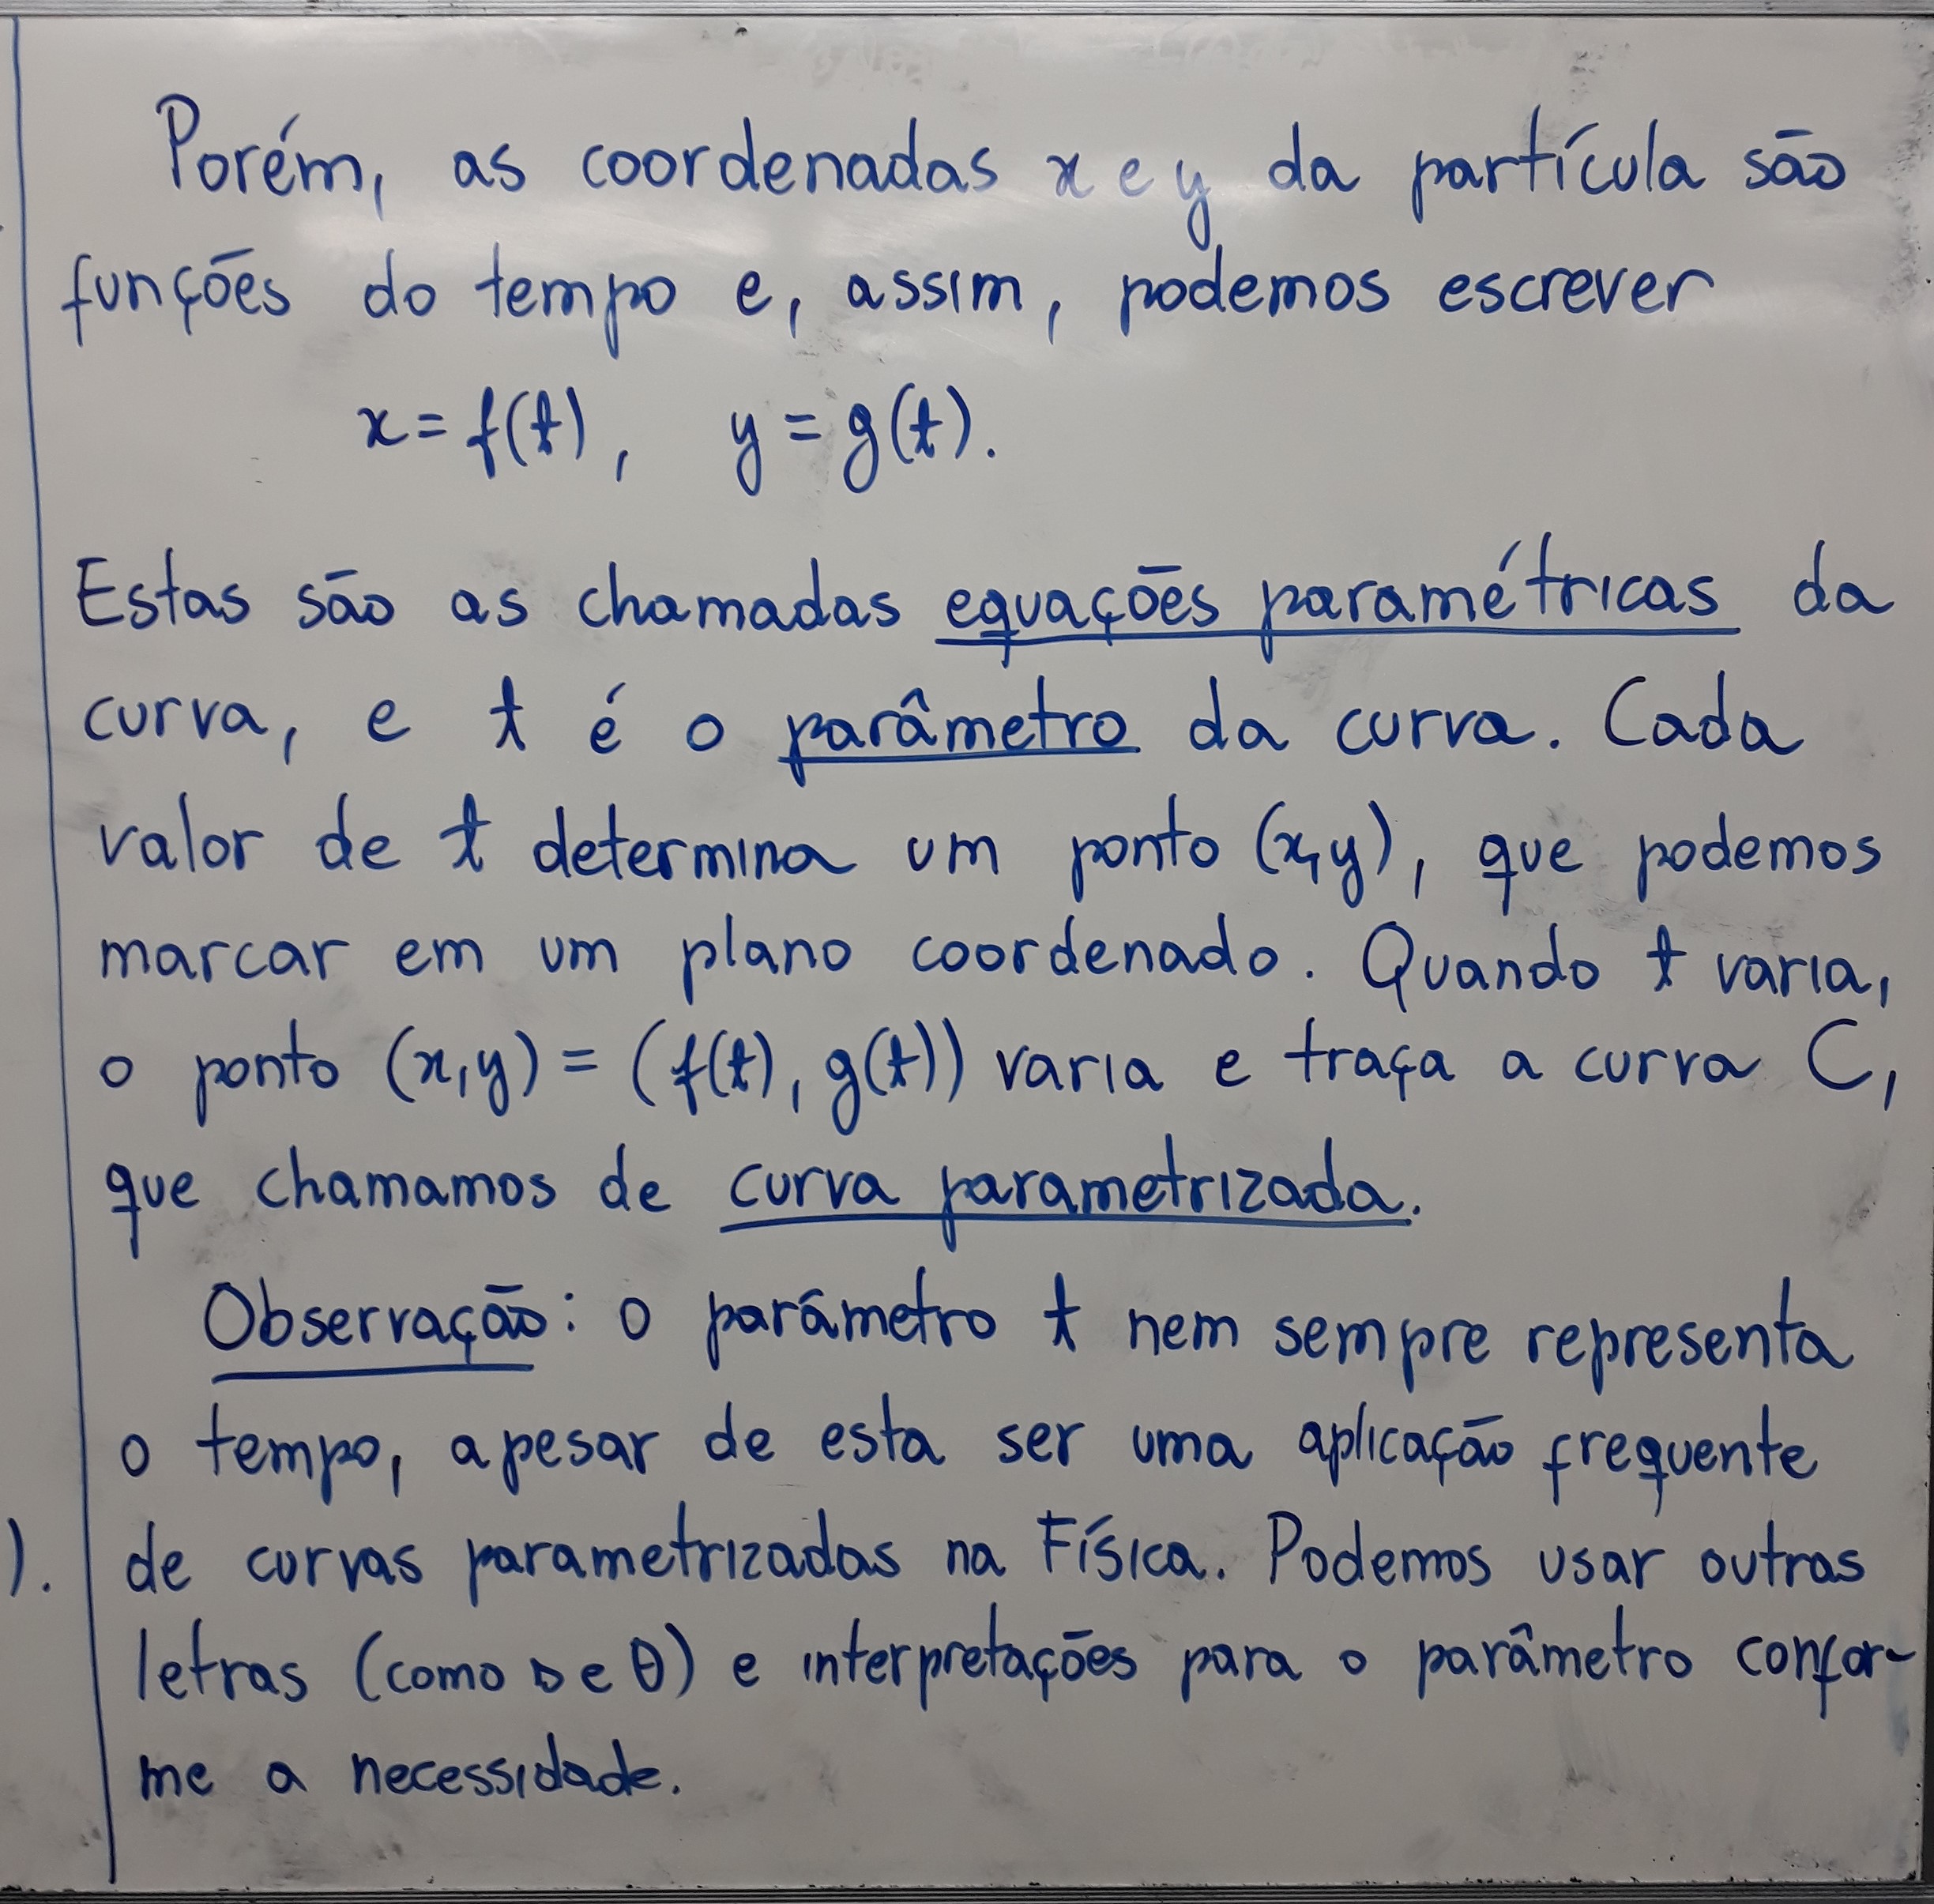 Porém, as coordenadas x e y da partícula são
funções do tempo e, assim, podemos escrever
x = f(t), y = g(t).
Estas são as chamadas equações paramétricas da
curva, e t é o parâmetro da curva. Cada
valor de t determina um ponto (x,y), que podemos
marcar em um plano coordenado. Quando t varia,
o ponto (x,y) = (f(t), g(t)) varia e traça a curva C,
que chamamos de curva parametrizada.
Observação: o parâmetro t nem sempre representa
o tempo, apesar de esta ser uma aplicação frequente
).
de curvas parametrizadas na Física. Podemos usar outras
letras (como s e θ) e interpretações para o parâmetro confor-
me a necessidade.